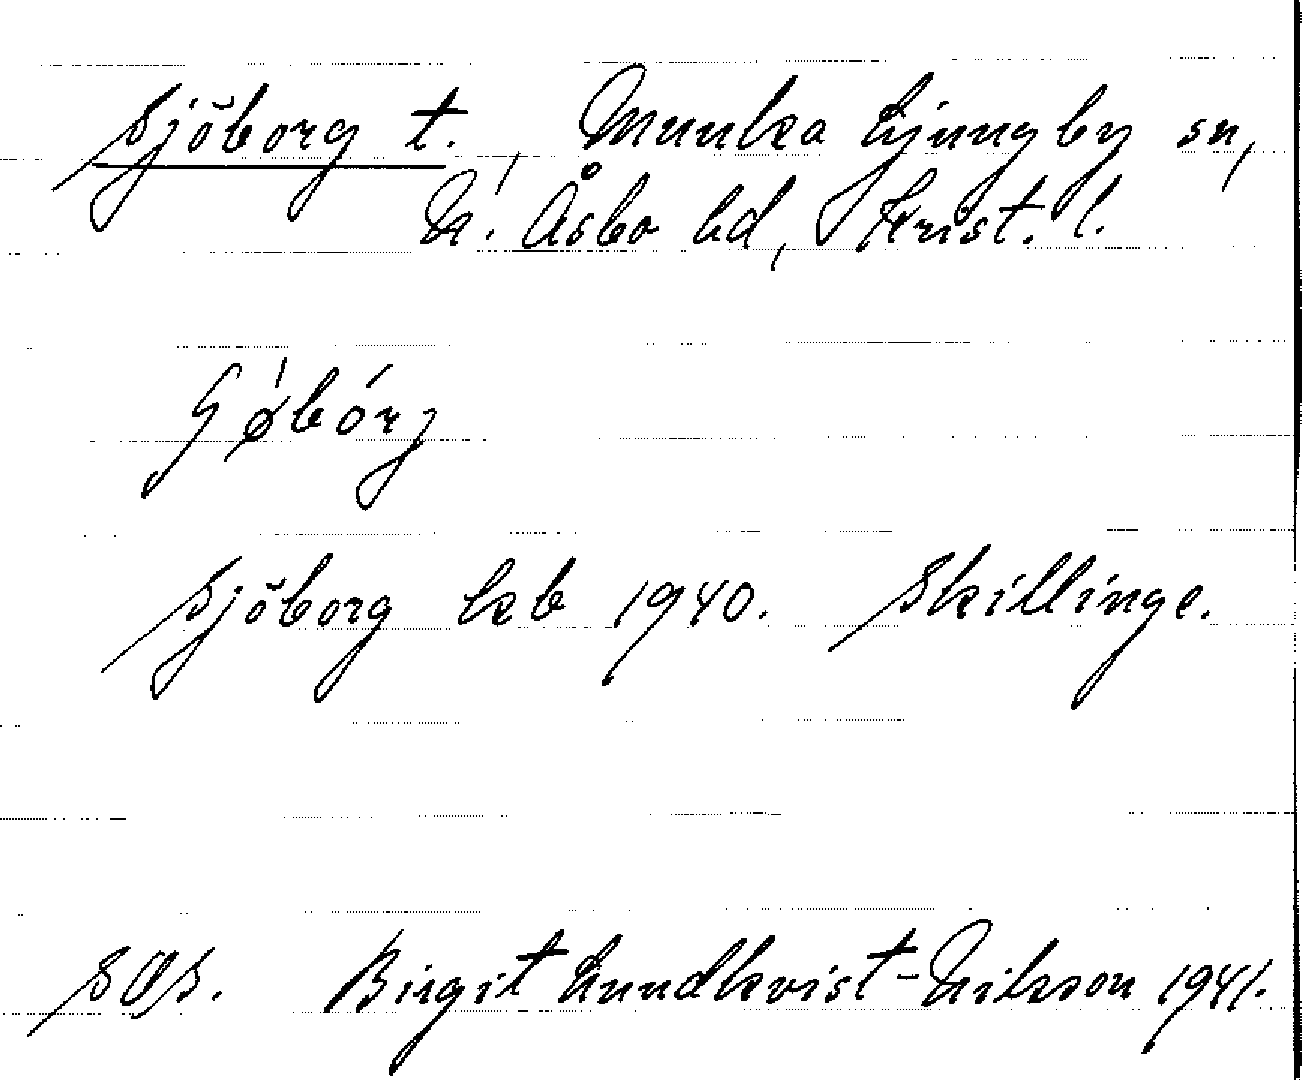 Sjöborg t. Munka Ljungby sn,
N. Åsbo hd, Krist. l.
ʃø̀bórj
Sjöborg kb 1940. Skillinge.
SOS. Birgit Lundkvist-Nilsson 1941.